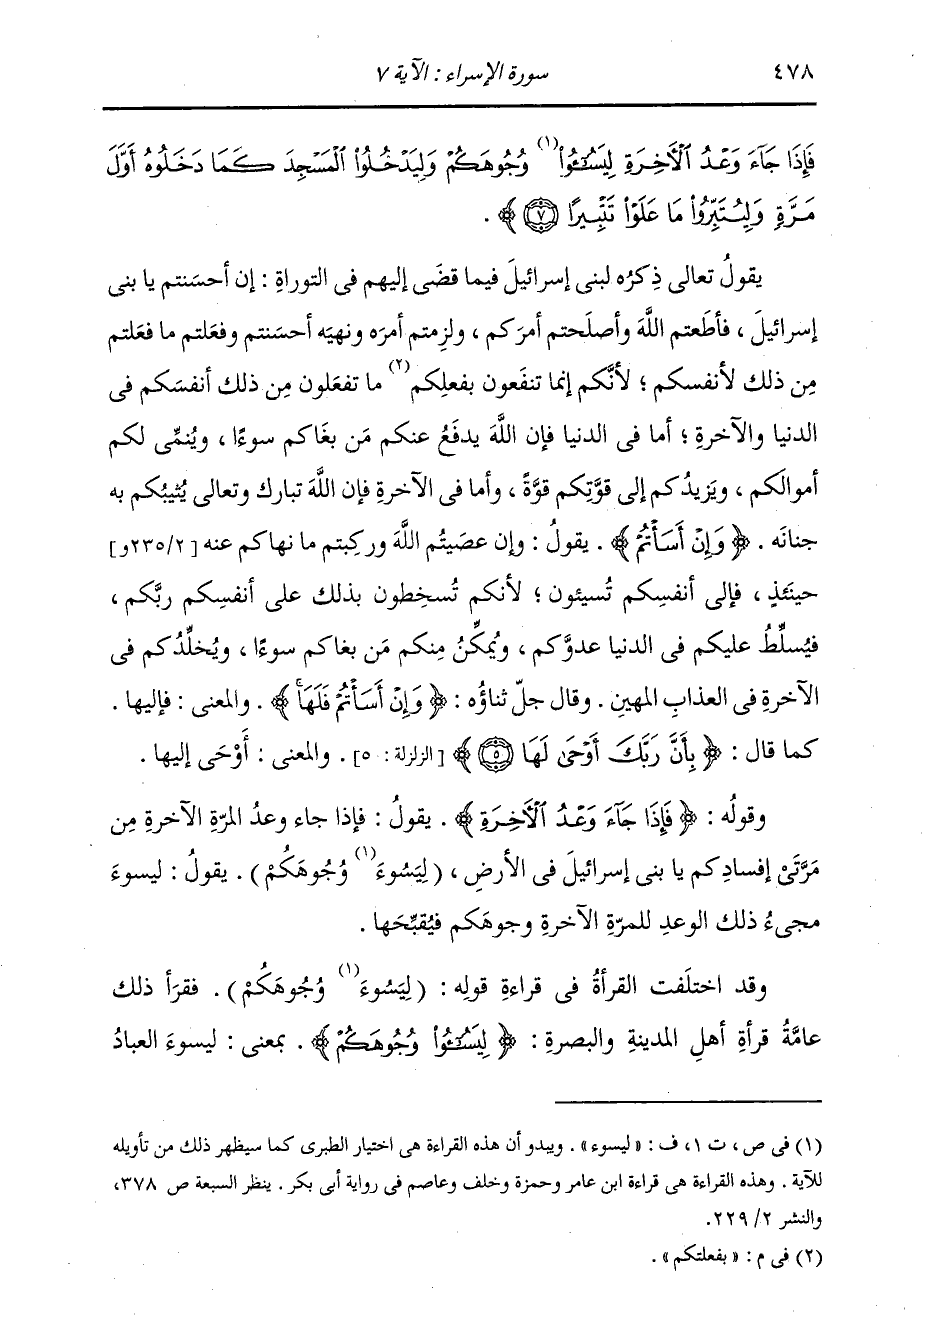 ٤٧٨ سورة الإسراء : الآية ٧
فَإِذَا جَآءَ وَعْدُ ٱلْأَخِرَةِ لِيَسُـۥٓـُٔوا۟(١) وُجُوهَكُمْ وَلِيَدْخُلُوا۟ ٱلْمَسْجِدَ كَمَا دَخَلُوهُ أَوَّلَ
مَرَّةٍ وَلِيُتَبِّرُوا۟ مَا عَلَوْا۟ تَتْبِيرًا ٧ ﴾ .
يقولُ تعالى ذِكرُه لبنى إسرائيلَ فيما قضَى إليهم فى التوراةِ : إن أحسَنتم يا بنى
إسرائيلَ ، فأطَعتم اللَّهَ وأصلَحتم أمرَكم ، ولزِمتم أمرَه ونهيَه أحسَنتم وفعَلتم ما فعَلتم
مِن ذلك لأنفسكم ؛ لأنَّكم إنما تنفَعون بفعلِكم(٢) ما تفعَلون مِن ذلك أنفسَكم فى
الدنيا والآخرةِ ؛ أما فى الدنيا فإن اللَّهَ يدفَعُ عنكم مَن بغَاكم سوءًا ، ويُنمِّى لكم
أموالَكم ، ويَزيدُكم إلى قوَّتِكم قوَّةً ، وأما فى الآخرةِ فإن اللَّهَ تبارك وتعالى يُثيبُكم به
جنانَه . ﴿ وَإِنْ أَسَأْتُمْ ﴾ . يقولُ : وإن عصَيتُم اللَّهَ وركِبتم ما نهاكم عنه [٢٣٥/٢و]
حينَئذٍ ، فإلى أنفسِكم تُسيئون ؛ لأنكم تُسخِطون بذلك على أنفسِكم ربَّكم ،
فيُسلِّطُ عليكم فى الدنيا عدوَّكم ، ويُمكِّنُ مِنكم مَن بغاكم سوءًا ، ويُخلِّدُكم فى
الآخرةِ فى العذابِ المهينِ . وقال جلّ ثناؤُه : ﴿ وَإِنْ أَسَأْتُمْ فَلَهَاۚ ﴾ . والمعنى : فإليها .
كما قال : ﴿ بِأَنَّ رَبَّكَ أَوْحَىٰ لَهَا ٥ ﴾ [الزلزلة : ٥] . والمعنى : أَوْحَى إليها .
وقولُه : ﴿ فَإِذَا جَآءَ وَعْدُ ٱلْأَخِرَةِ ﴾ . يقولُ : فإذا جاء وعدُ المرّةِ الآخرةِ مِن
مَرَّتَىْ إفسادِكم يا بنى إسرائيلَ فى الأرضِ ، (لِيَسُوءَ(١) وُجُوهَكُمْ) . يقولُ : ليسوءَ
مجىءُ ذلك الوعدِ للمرّةِ الآخرةِ وجوهَكم فيُقبِّحَها .
وقد اختلَفت القرأةُ فى قراءةِ قولِه : (لِيَسُوءَ(١) وُجُوهَكُمْ) . فقرَأ ذلك
عامَّةُ قرأةِ أهلِ المدينةِ والبصرةِ : ﴿ لِيَسُـۥٓـُٔوا۟ وُجُوهَكُمْ ﴾ . بمعنى : ليسوءَ العبادُ
(١) فى ص ، ت ١ ، ف : « ليسوء » . ويبدو أن هذه القراءة هى اختيار الطبرى كما سيظهر ذلك من تأويله
للآية . وهذه القراءة هى قراءة ابن عامر وحمزة وخلف وعاصم فى رواية أبى بكر . ينظر السبعة ص ٣٧٨،
والنشر ٢/ ٢٢٩.
(٢) فى م : « بفعلتكم » .